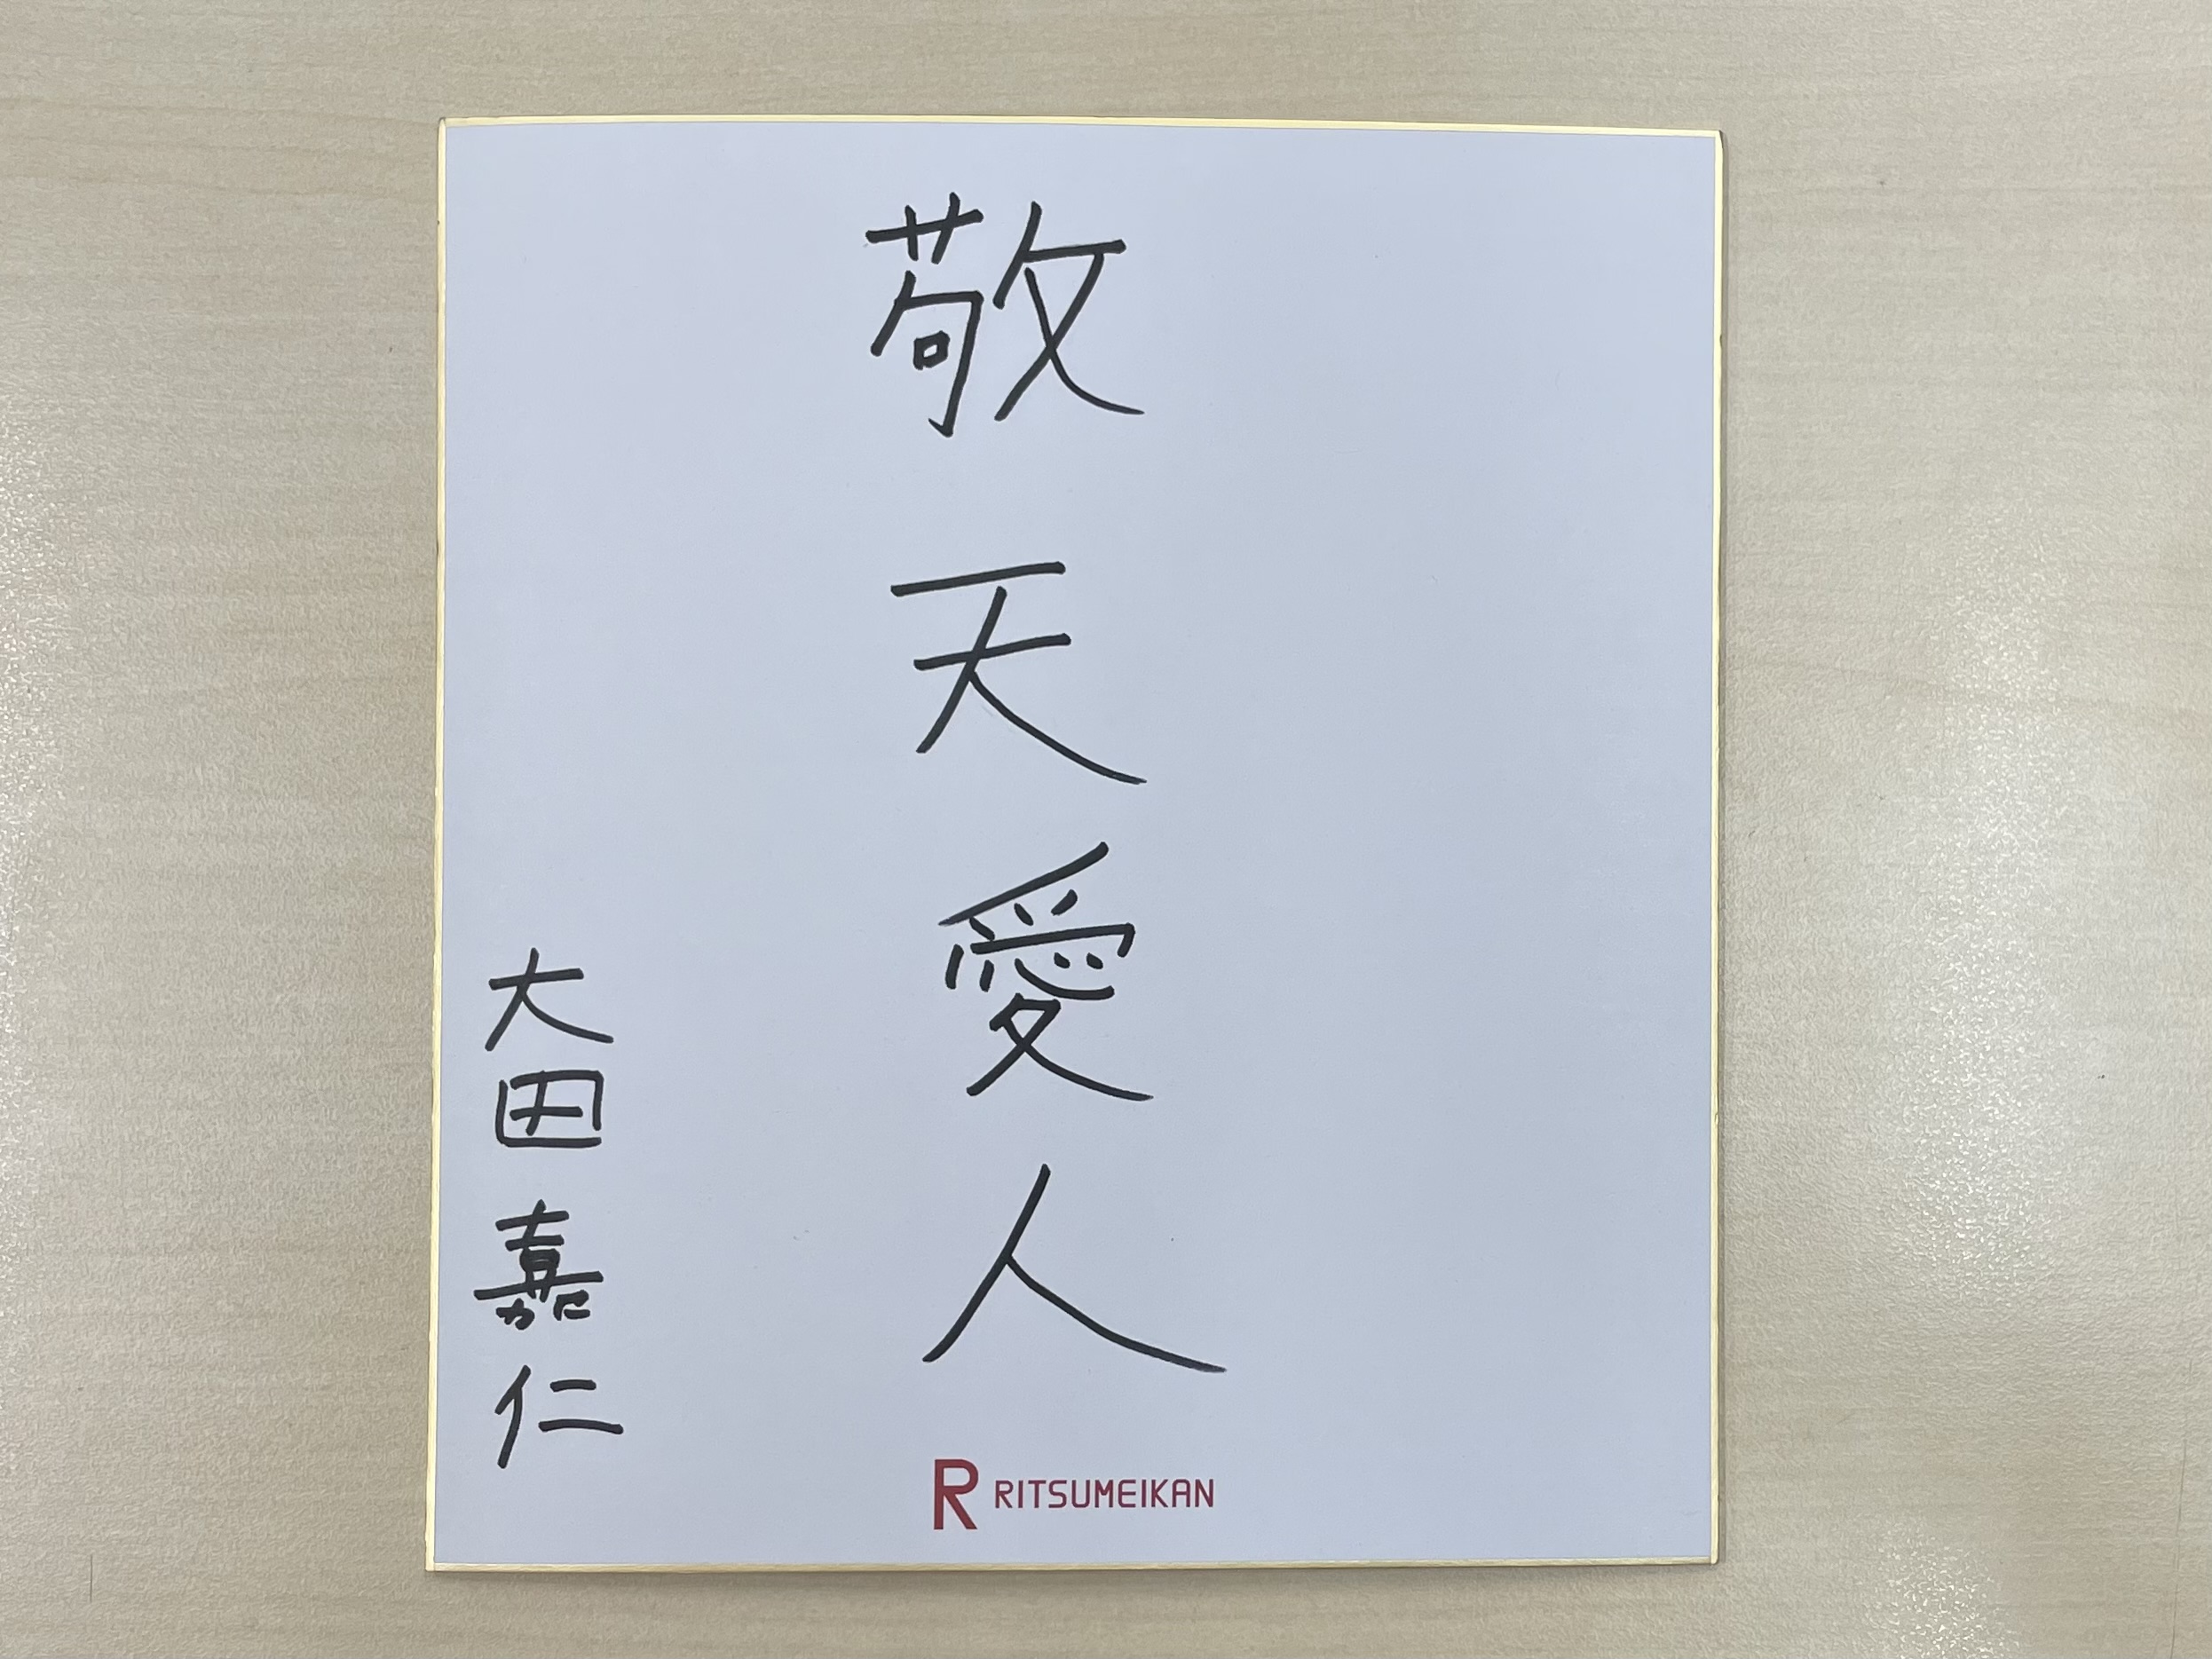 敬天愛人
大田嘉仁
R RITSUMEIKAN